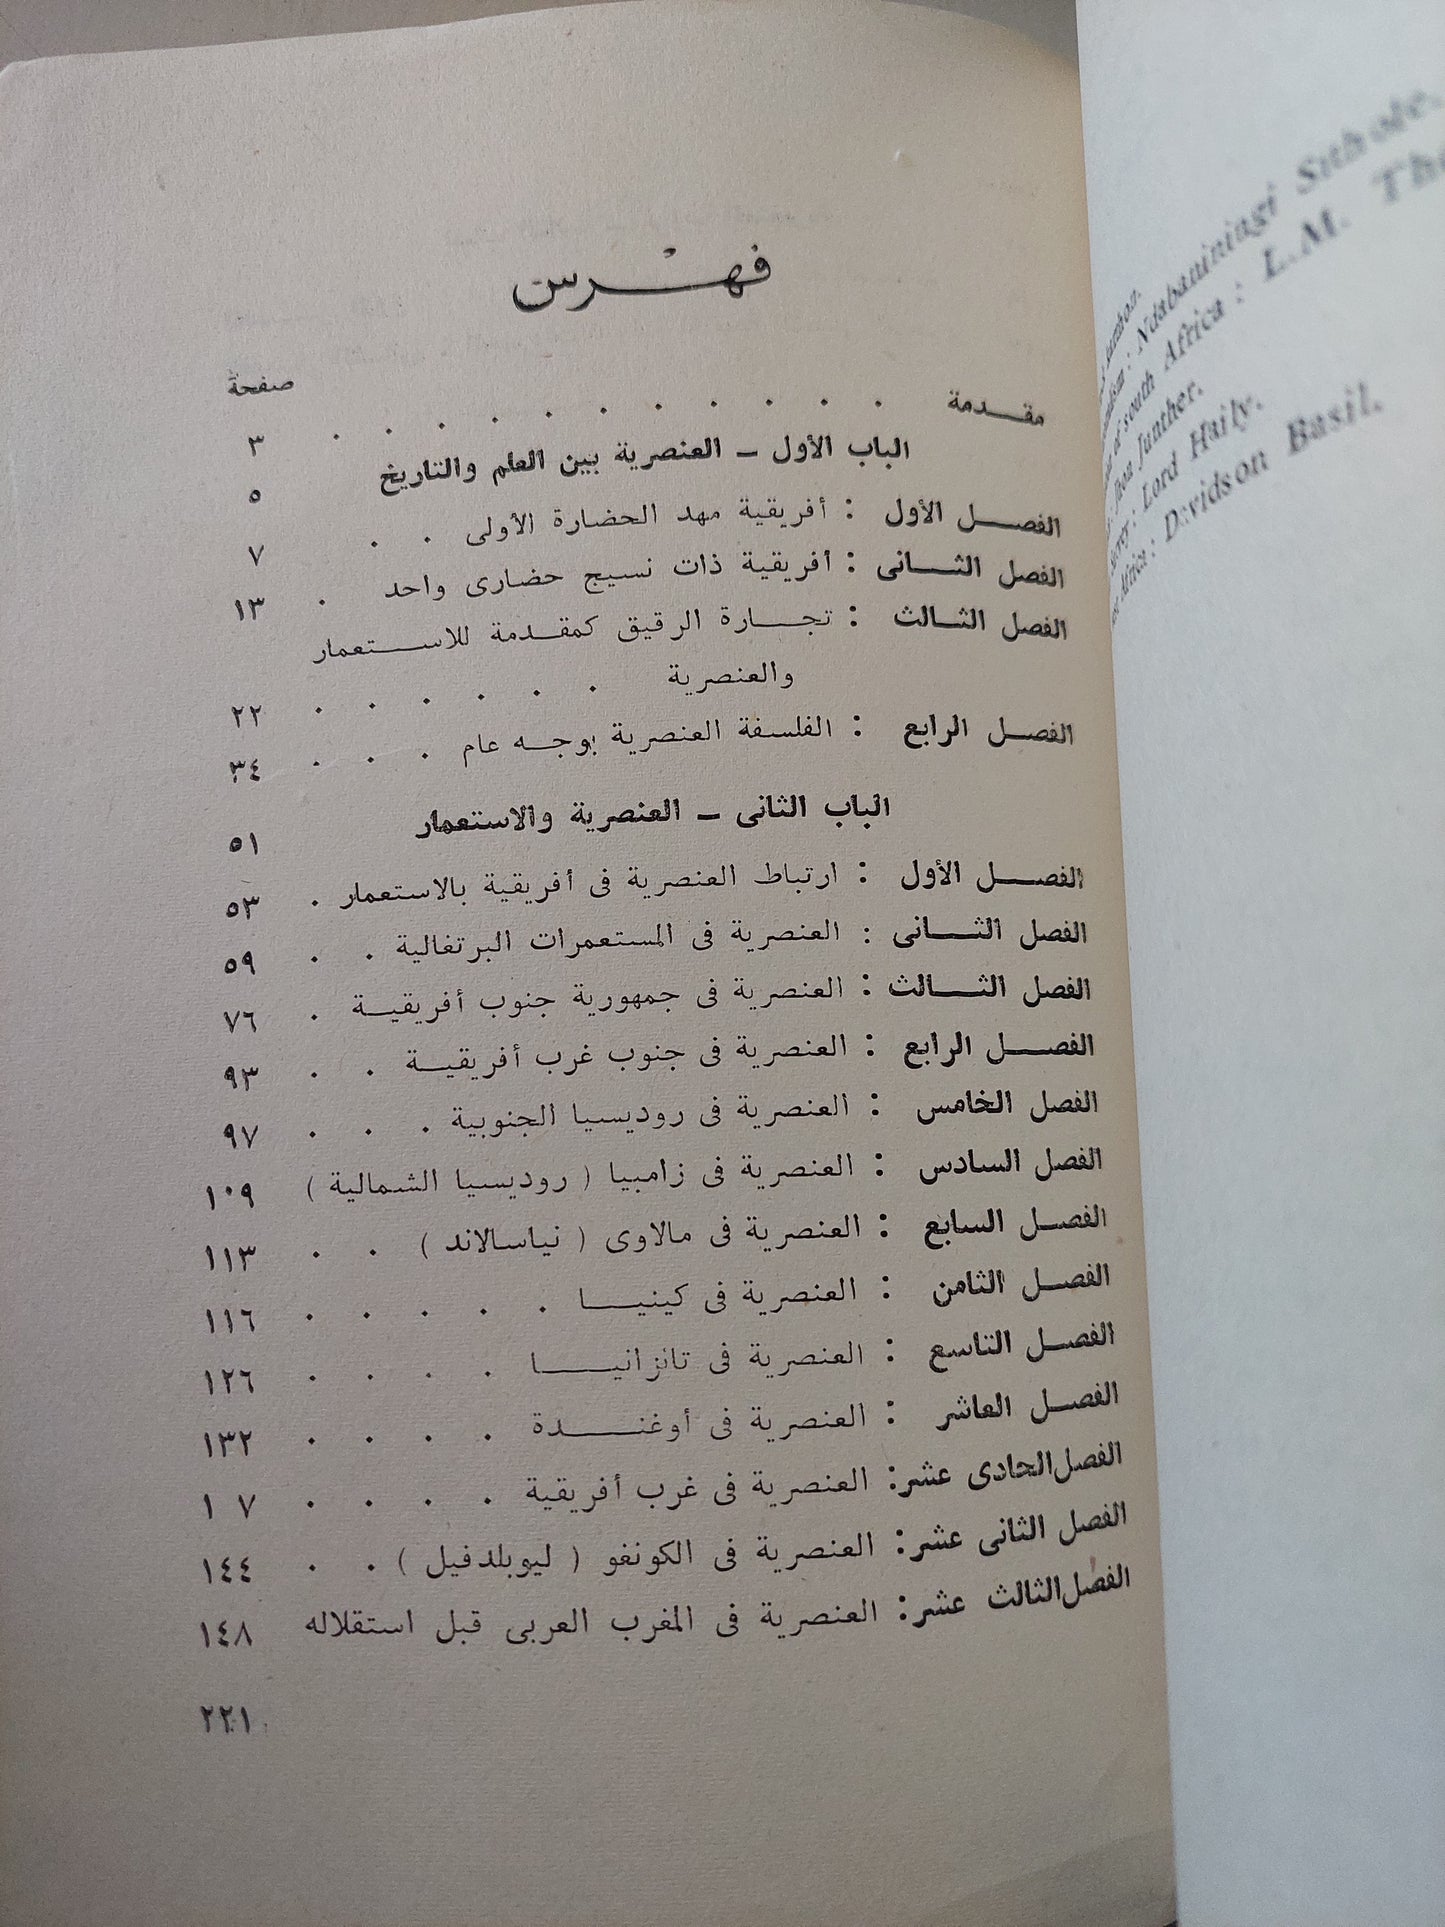 فهرس
صفحة
مقدمة . . . . . . . . . . . ٣
الباب الأول — العنصرية بين العلم والتاريخ ٥
الفصل الأول : أفريقية مهد الحضارة الأولى . . ٧
الفصل الثانى : أفريقية ذات نسيج حضارى واحد . ١٣
الفصل الثالث : تجارة الرقيق كمقدمة للاستعمار
والعنصرية . . . . . . ٢٢
الفصل الرابع : الفلسفة العنصرية بوجه عام . . . ٣٤
الباب الثانى — العنصرية والاستعمار ٥١
الفصل الأول : ارتباط العنصرية فى أفريقية بالاستعمار . ٥٣
الفصل الثانى : العنصرية فى المستعمرات البرتغالية . . ٥٩
الفصل الثالث : العنصرية فى جمهورية جنوب أفريقية . ٧٦
الفصل الرابع : العنصرية فى جنوب غرب أفريقية . . ٩٣
الفصل الخامس : العنصرية فى روديسيا الجنوبية . . . ٩٧
الفصل السادس : العنصرية فى زامبيا ( روديسيا الشمالية ) ١٠٩
الفصل السابع : العنصرية فى مالاوى ( نياسالاند ) . . ١١٣
الفصل الثامن : العنصرية فى كينيا . . . . . ١١٦
الفصل التاسع : العنصرية فى تانزانيا . . . . ١٢٦
الفصل العاشر : العنصرية فى أوغندة . . . . ١٣٢
الفصل الحادى عشر : العنصرية فى غرب أفريقية . . . . ١ ٧
الفصل الثانى عشر : العنصرية فى الكونغو ( ليوبلدفيل ) . . ١٤٤
الفصل الثالث عشر : العنصرية فى المغرب العربى قبل استقلاله ١٤٨
٢٢١
Ndabaniningi Sithole.
of south Africa : L.M. The
Jhon Junther.
Lord Haily.
Africa : Davidson Basil.